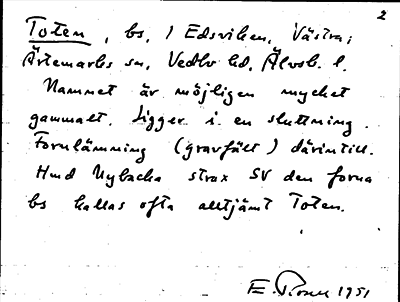 2
Toten, bs, i Edsviken, Västra,
Ärtemarks sn, Vedbo hd, Älvsb. l.
Namnet är möjligen mycket
gammalt. Ligger i en sluttning.
Fornlämning (gravfält) därintill.
Hmd Nybacka strax SV den forna
bs kallas ofta alltjämt Toten.
E. 1951